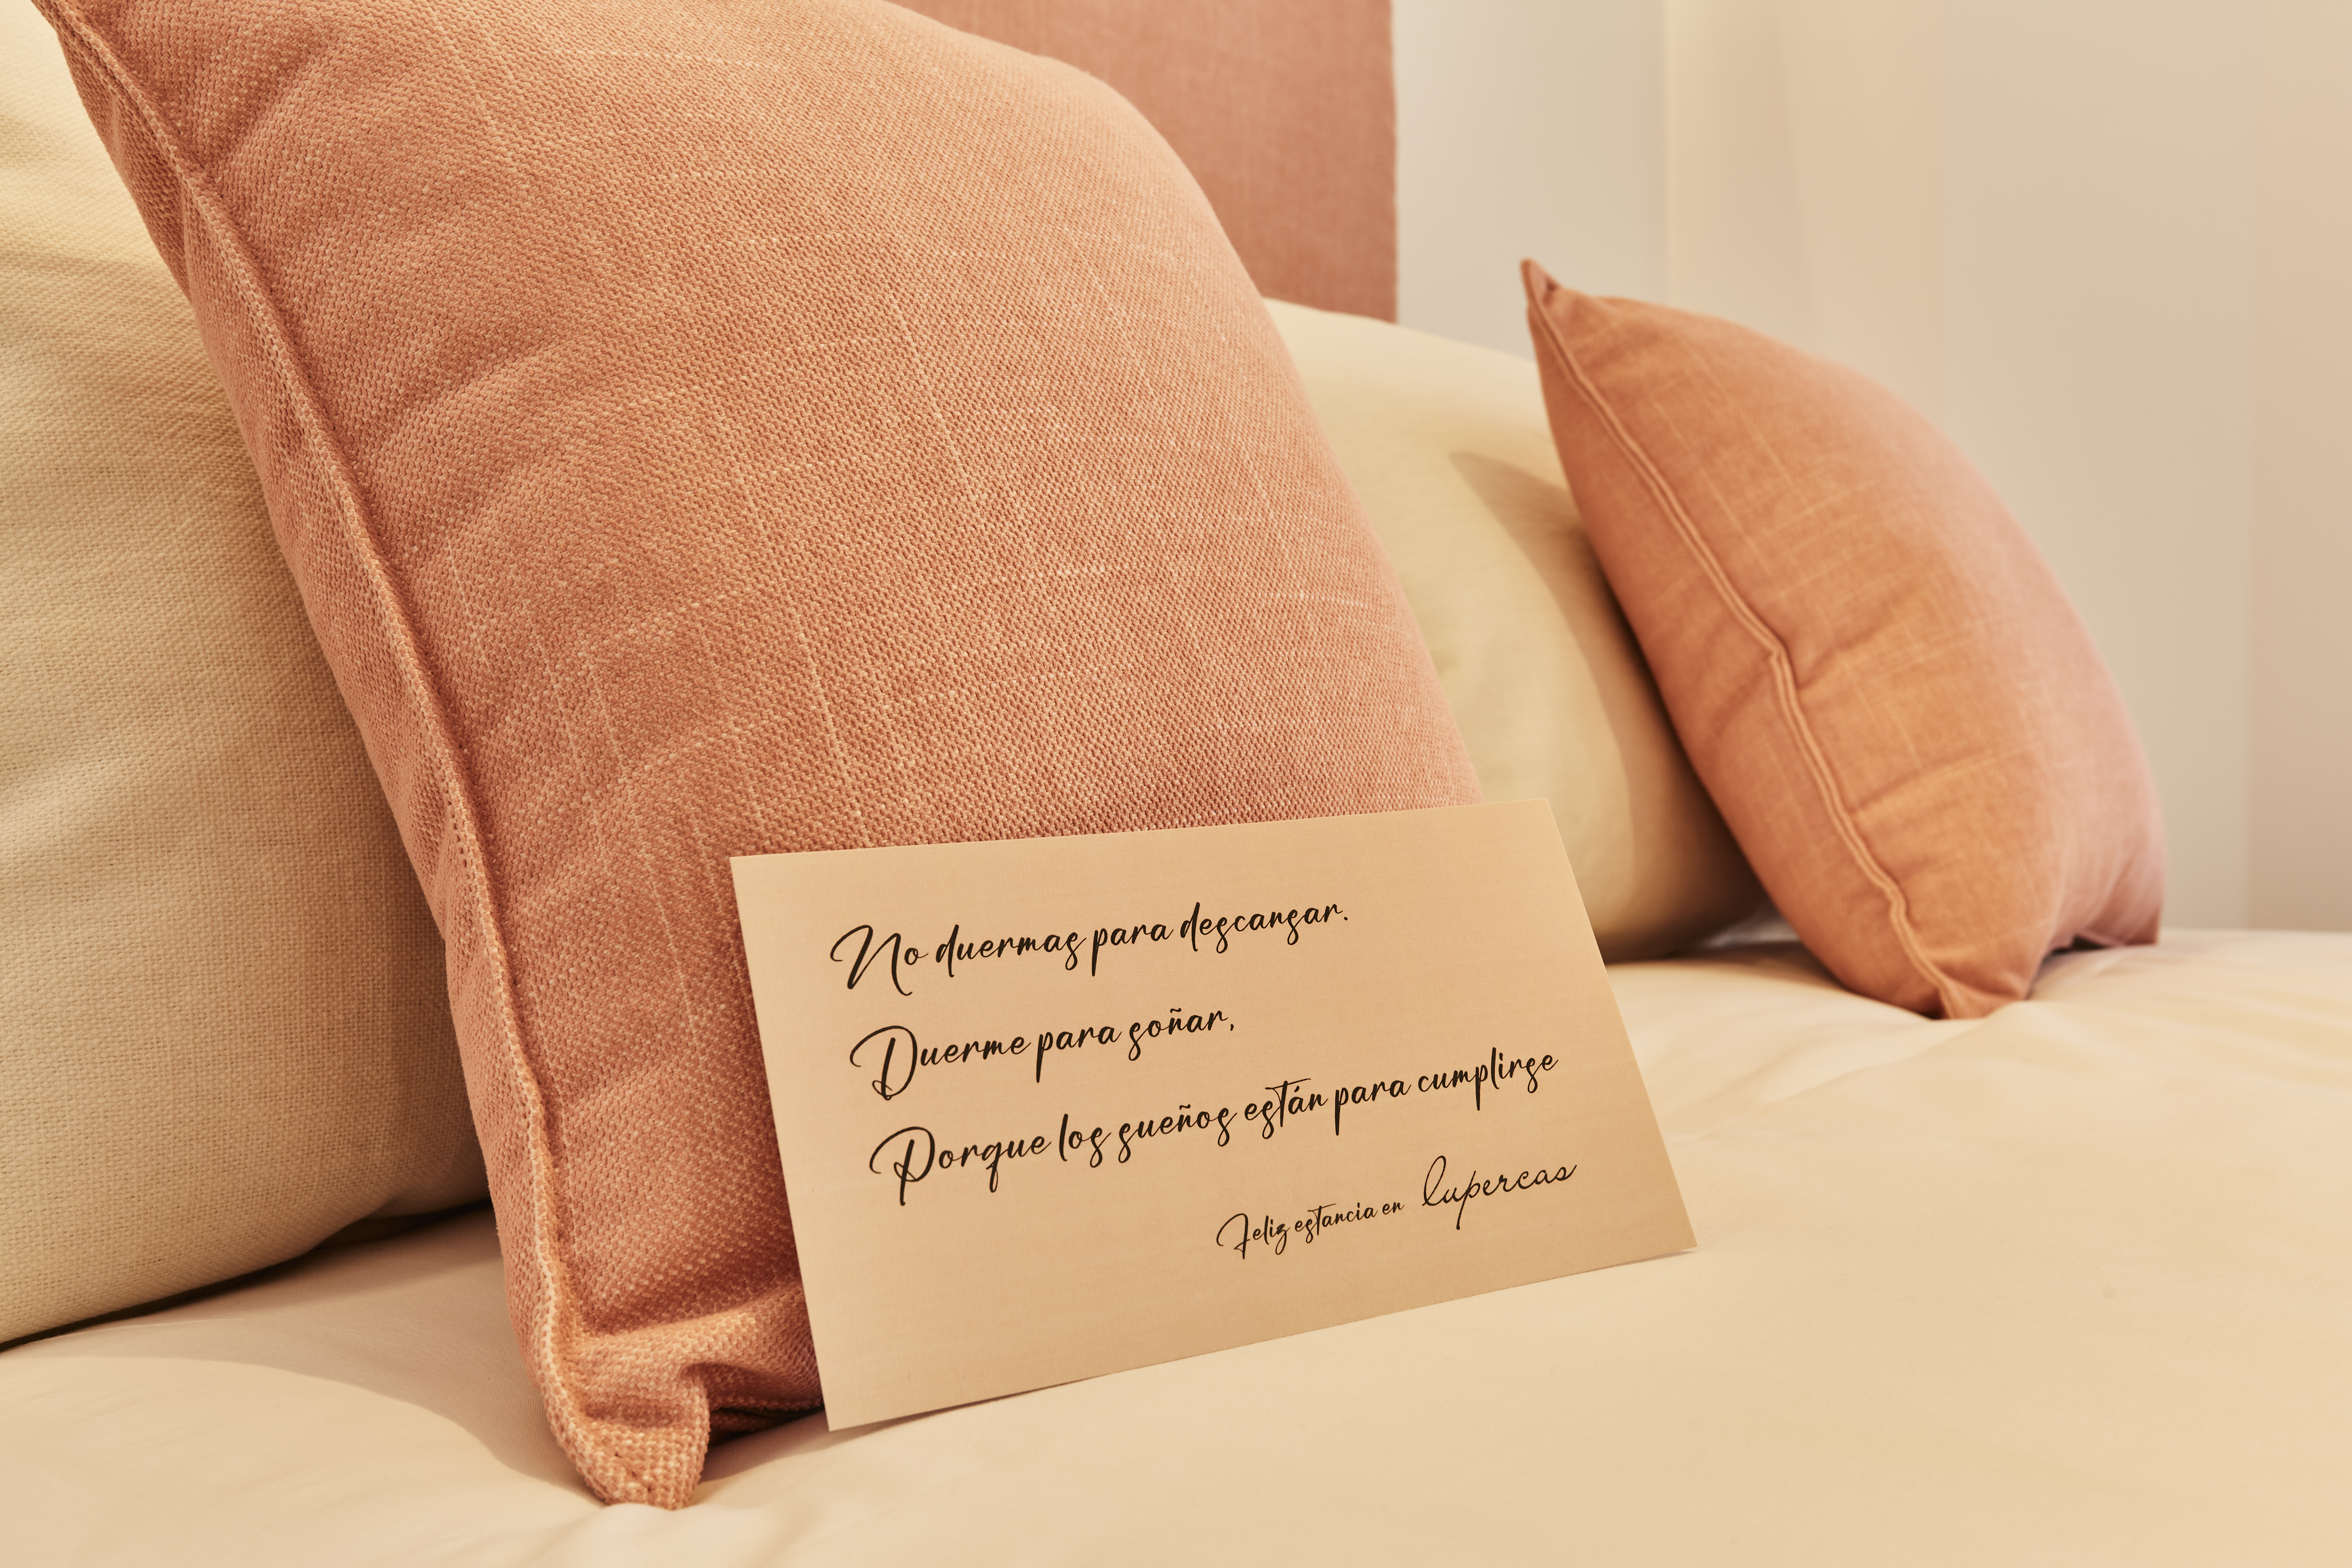 No duermas para descansar.
Duerme para soñar,
Porque los sueños están para cumplirse
Feliz estancia en lupercas